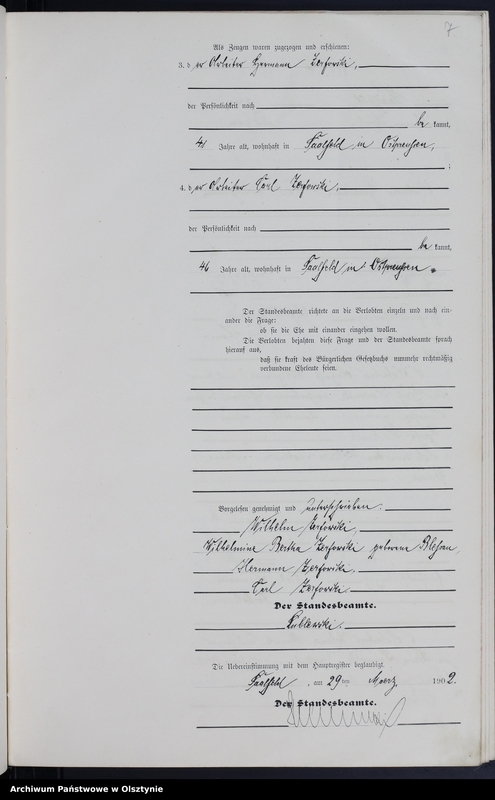 7
Als Zeugen waren zugezogen und erschienen:
3. der Arbeiter Hermann
der Persönlichkeit nach
be kannt,
41 Jahre alt, wohnhaft in Saalfeld in Ostpreußen,
;
4. der Arbeiter Carl
der Persönlichkeit nach
be kannt,
46 Jahre alt, wohnhaft in Saalfeld in Ostpreußen.
Der Standesbeamte richtete an die Verlobten einzeln und nach ein-
ander die Frage:
ob sie die Ehe mit einander eingehen wollen.
Die Verlobten bejahten diese Frage und der Standesbeamte sprach
hierauf aus,
daß sie kraft des Bürgerlichen Gesetzbuchs nunmehr rechtmäßig
verbundene Eheleute seien.
Vorgelesen genehmigt und unterschrieben.
Wilhelm
Wilhelmine Bertha geborene
Hermann
Carl
Der Standesbeamte.
Die Uebereinstimmung mit dem Hauptregister beglaubigt.
Saalfeld, am 29 ten Maerz 1902.
Der Standesbeamte.
Archiwum Państwowe w Olsztynie